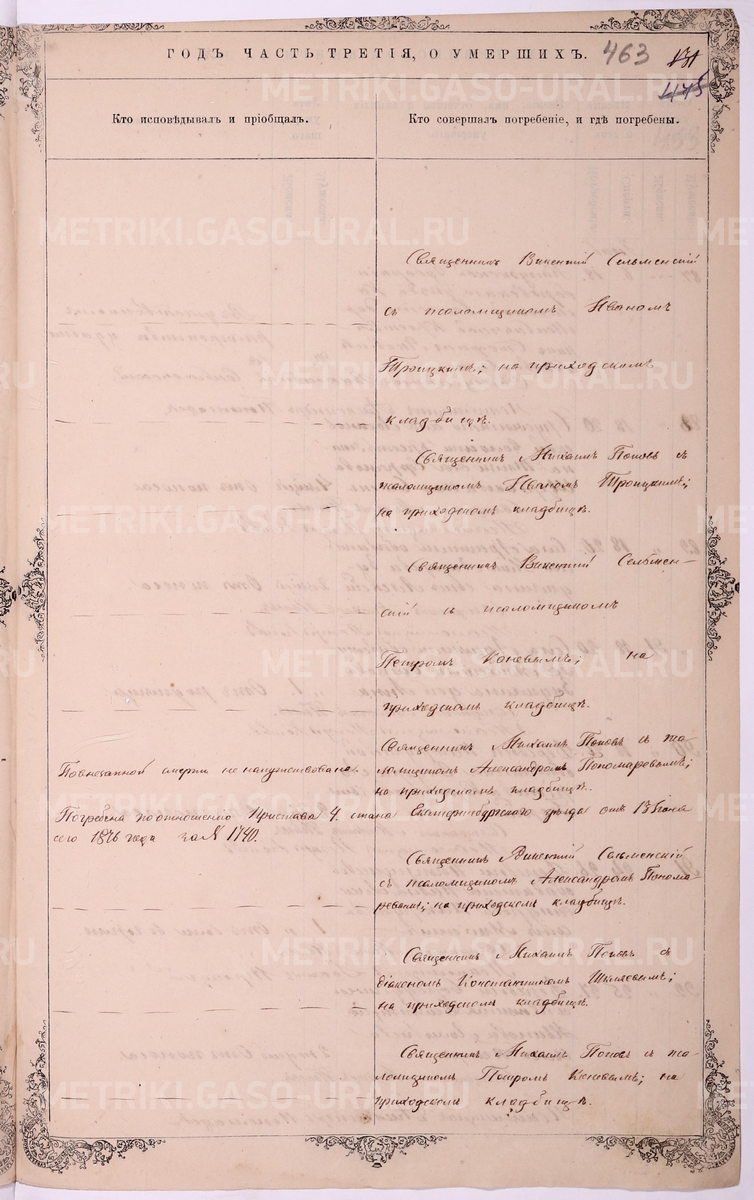 ГОДЪ ЧАСТЬ ТРЕТІЯ, О УМЕРШИХЪ.
463
475
Кто исповѣдывалъ и пріобщалъ.
Кто совершалъ погребеніе, и гдѣ погребены.
METRIKI.GASO-URAL.RU
Священникъ Викентій Сельменскій
съ псаломщикомъ Иваномъ
Троицкимъ; на приходскомъ
кладбищѣ.
Священникъ Михаилъ Поповъ съ
псаломщикомъ Иваномъ Троицкимъ;
на приходскомъ кладбищѣ.
Священникъ Викентій Сельмен-
скій съ псаломщикомъ
Петромъ Коневымъ; на
приходскомъ кладбищѣ.
Священникъ Михаилъ Поповъ съ пса
ломщикомъ Александромъ Пономаревымъ;
на приходскомъ кладбищѣ.
По внезапной смерти не напутствована.
Погребена по отношенію Пристава 4. стана Екатеринбургского уѣзда отъ 13
сего 1876 года за № 1740.
Священникъ Викентій Сельменскій
съ псаломщикомъ Александромъ Понома-
ревымъ; на приходскомъ кладбищѣ.
Священникъ Михаилъ Поповъ съ
діакономъ Константиномъ
на приходскомъ кладбищѣ.
Священникъ Михаилъ Поповъ съ пса
ломщикомъ Петромъ Коневымъ; на
приходскомъ кладбищѣ.